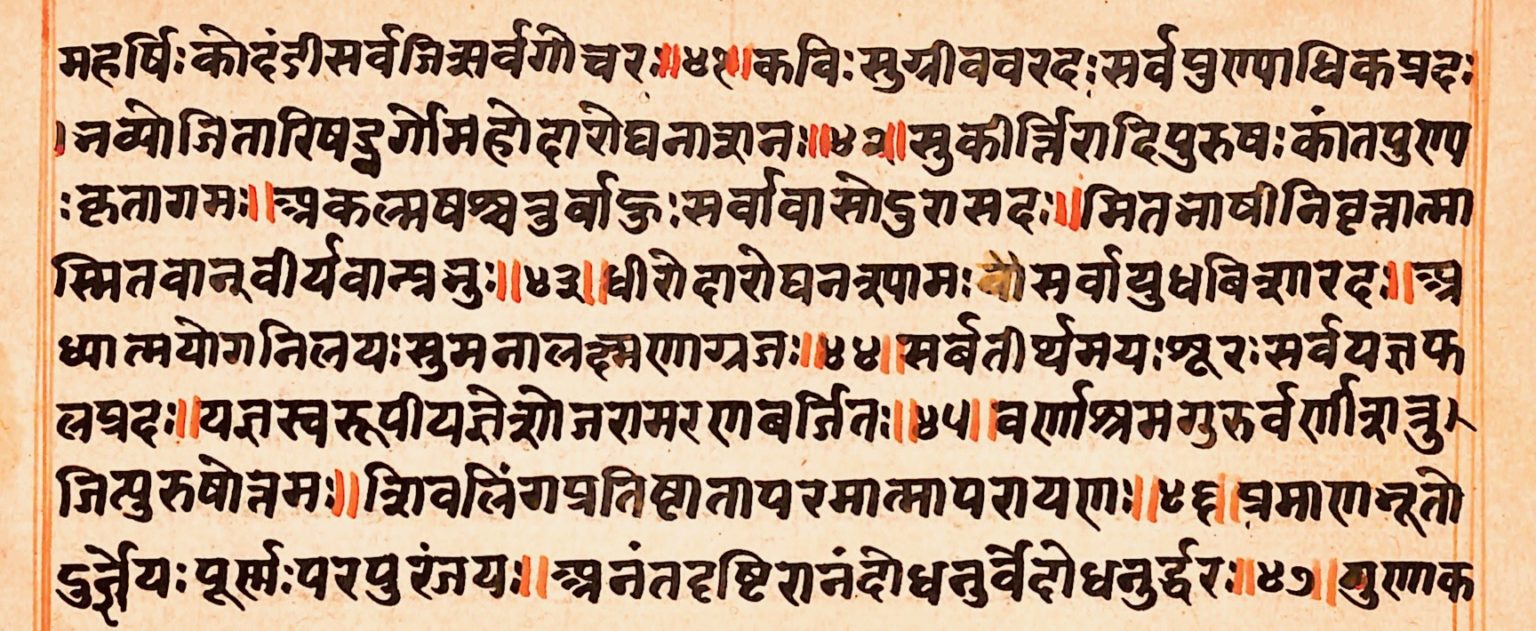 महर्षिःकोदंडीसर्वजित्सर्वगोचरः॥४१॥कविःसुग्रीववरदःसर्वपुण्याधिकप्रदः
।नव्योजितारिषड्वर्गोमहोदारोघनाशनः॥४२॥सुकीर्त्तिरादिपुरुषःकांतपुण्य
ःकृतागमः॥अकल्मषश्चतुर्बाहुःसर्वावासोदुरासदः॥मितभाषीनिवृत्तात्मा
स्मितवान्वीर्यवान्प्रभुः॥४३॥धीरोदारोघनश्यामः सर्वायुधबिशारदः॥अ
ध्यात्मयोगनिलयःसुमनालक्ष्मणाग्रजः॥४४॥सर्बतीर्थमयःशूरःसर्वयज्ञफ
लप्रदः॥यज्ञस्वरूपीयज्ञेशोजरामरणबर्जितः॥४५॥वर्णाश्रमगुरुर्वर्णीशत्रु
जित्पुरुषोत्तमः॥शिवलिंगप्रतिष्ठातापरमात्मापरायणः॥४६॥प्रमाणभूतो
दुर्ज्ञेयःपूर्णःपरपुरंजयः॥अनंतदृष्टिरानंदोधनुर्वेदोधनुर्द्धरः॥४७॥गुणाक